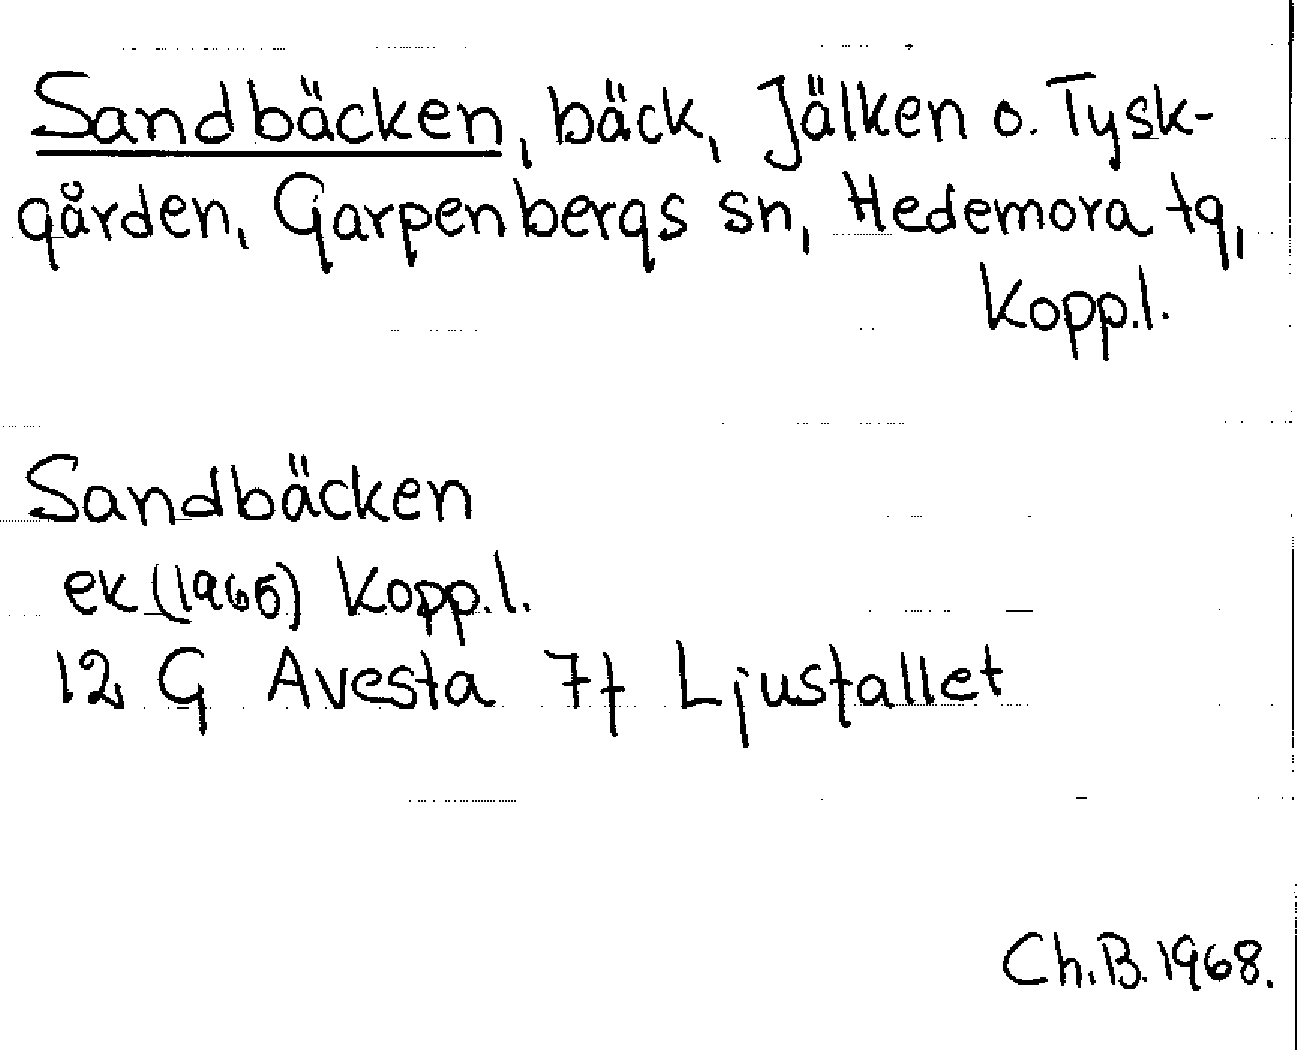 Sandbäcken, bäck, Jälken o. Tysk-
gården, Garpenbergs sn, Hedemora tg,
Kopp.l.
Sandbäcken
ek (1965) Kopp.l.
12 G Avesta 7f Ljusfallet
Ch.B. 1968.